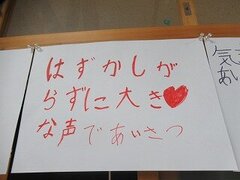 はずかしが
らずに大き♥
な声であいさつ
気